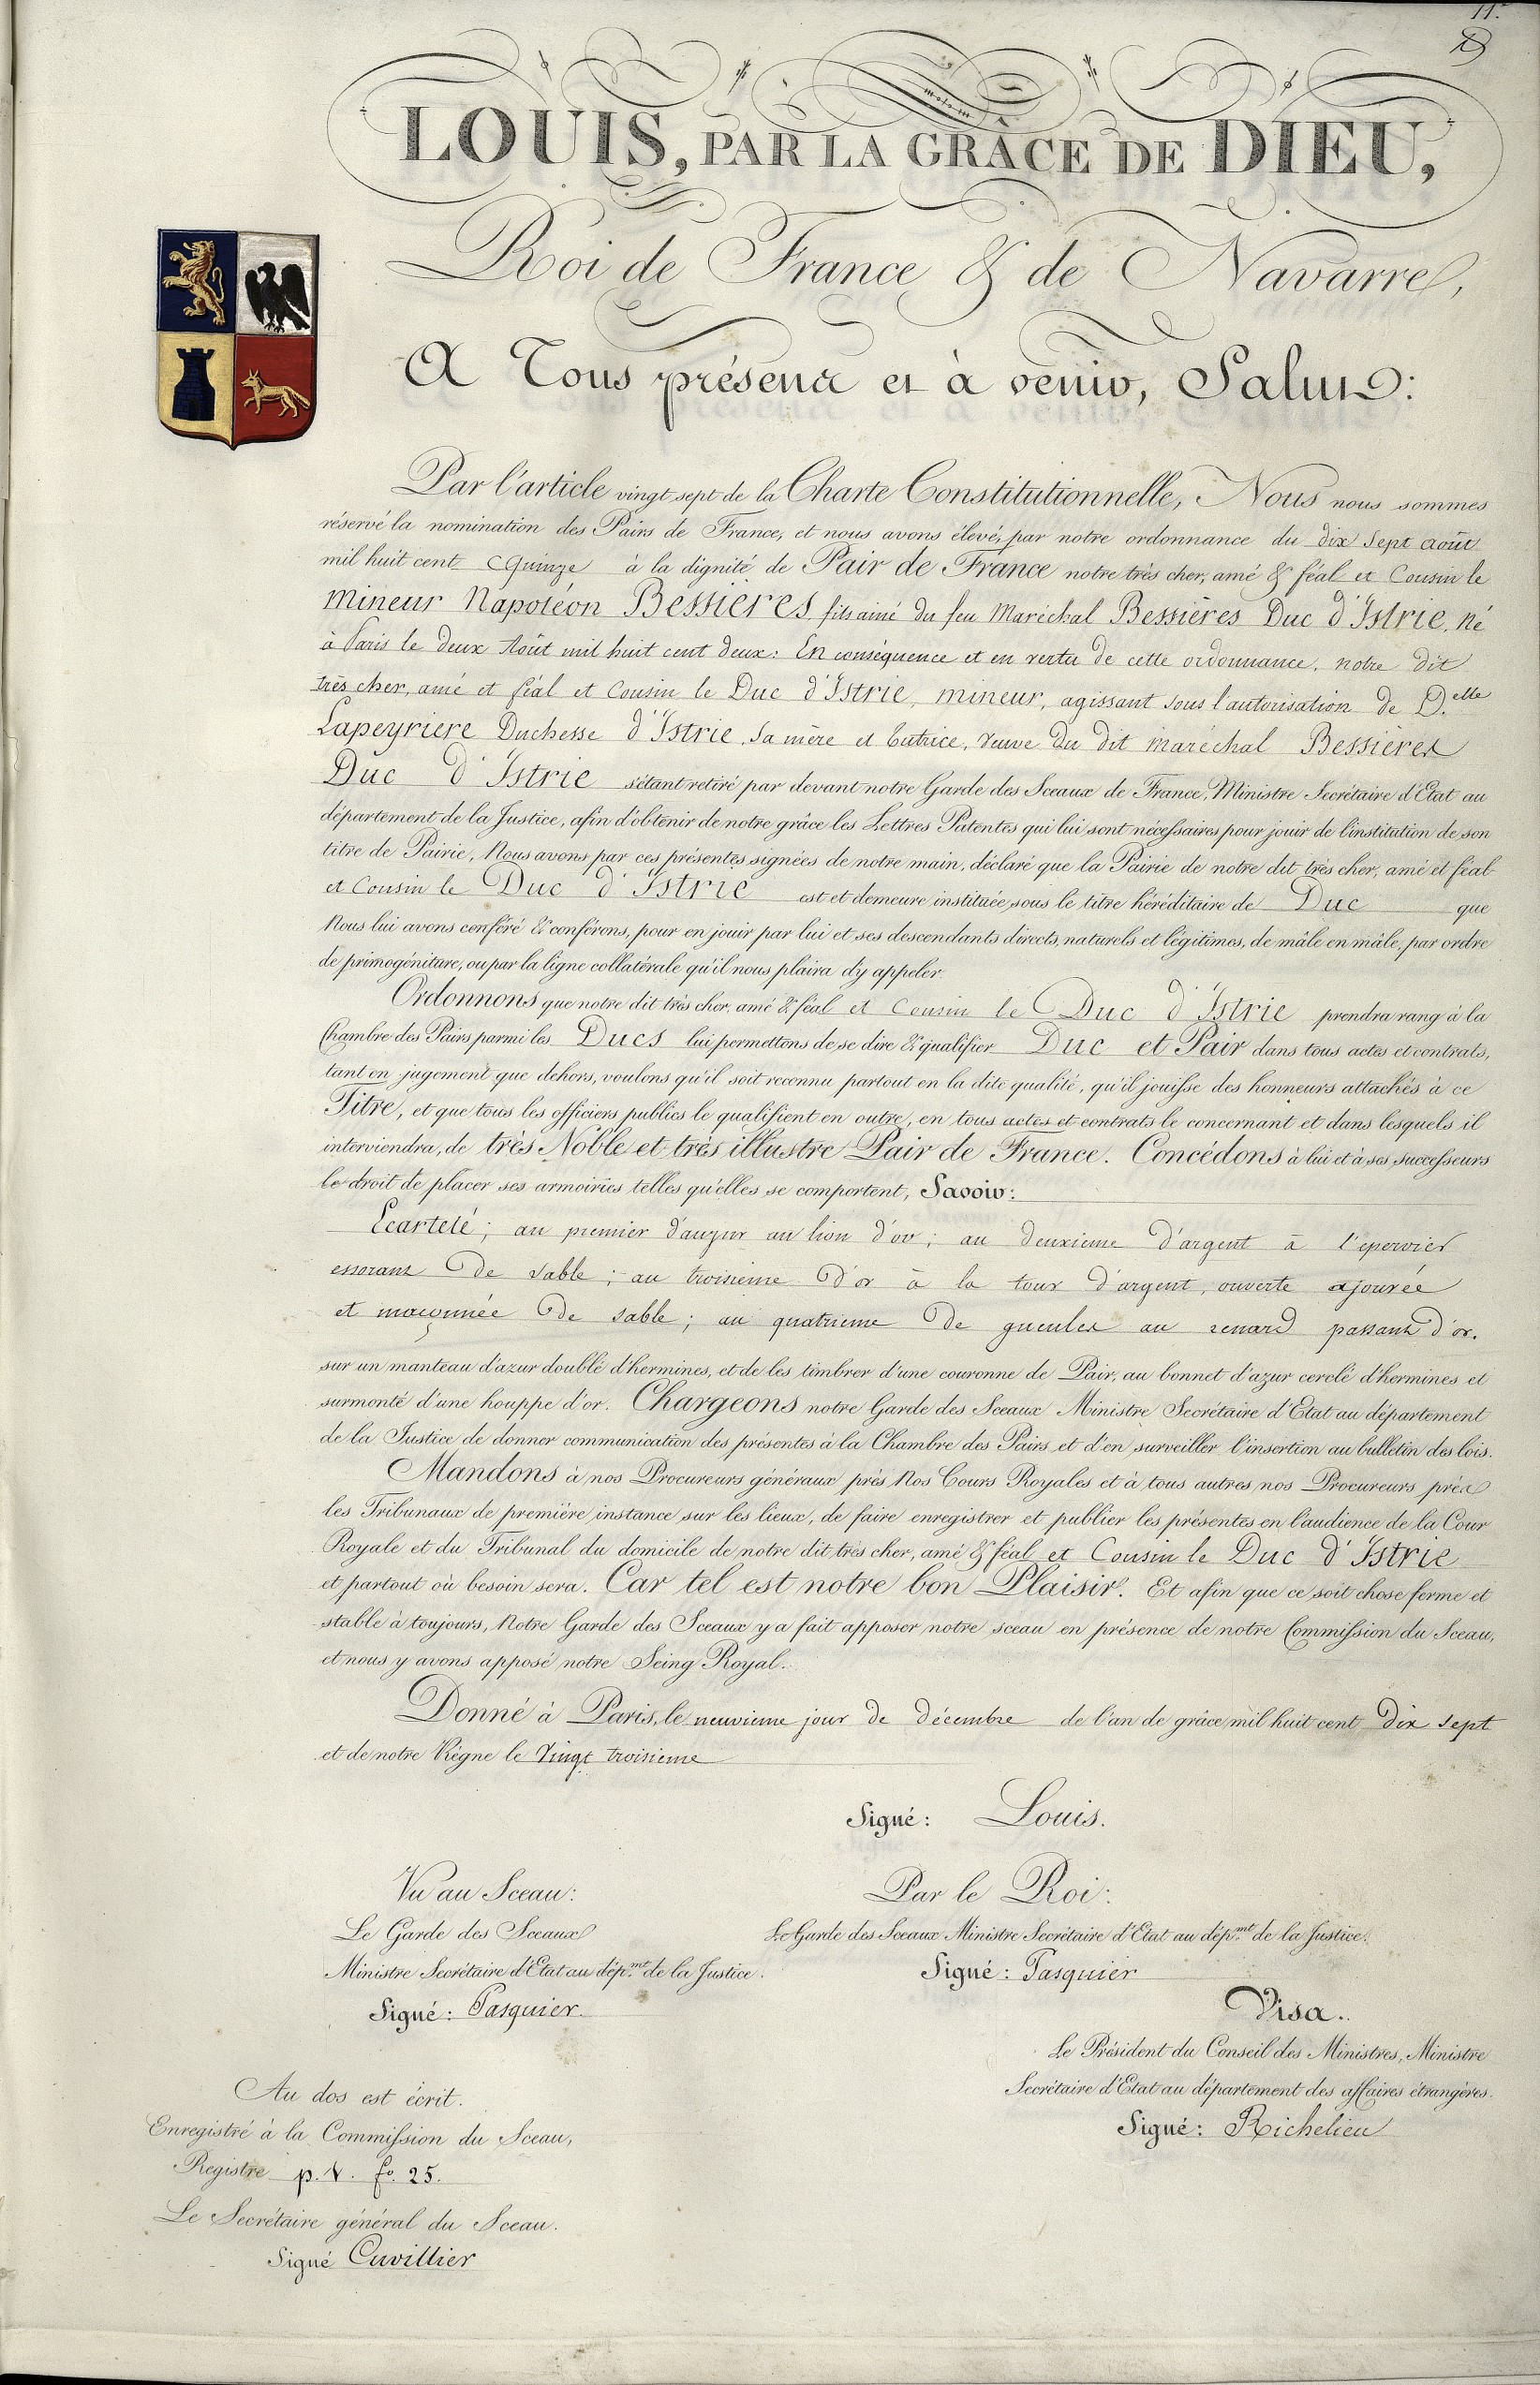 11.
LOUIS, PAR LA GRÂCE DE DIEU,
Roi de France & de Navarre,
A Tous présens et à venir, Salut:
Par l'article vingt sept de la Charte Constitutionnelle, Nous nous sommes
réservé la nomination des Pairs de France, et nous avons élevé, par notre ordonnance du dix sept août
mil huit cent Quinze à la dignité de Pair de France notre très cher, amé & féal et Cousin le
mineur Napoléon Bessières, fils ainé du feu Maréchal Bessières Duc d'Istrie, né
à Paris le deux Août mil huit cent deux: En conséquence et en vertu de cette ordonnance, notre dit
très cher, amé et féal et Cousin le Duc d'Istrie, mineur, agissant sous l'autorisation de D.elle
Lapeyriere Duchesse d'Istrie, sa mère et tutrice, veuve du dit maréchal Bessières
Duc d'Istrie s'étant retiré par devant notre Garde des Sceaux de France, Ministre Secrétaire d'Etat au
département de la Justice, afin d'obtenir de notre grâce les Lettres Patentes qui lui sont nécessaires pour jouir de l'institution de son
titre de Pairie, Nous avons par ces présentes signées de notre main, déclaré que la Pairie de notre dit très cher, amé et féal
et Cousin le Duc d'Istrie est et demeure instituée sous le titre héréditaire de Duc que
Nous lui avons conféré & conférons, pour en jouir par lui et ses descendants directs, naturels et légitimes, de mâle en mâle, par ordre
de primogéniture, ou par la ligne collatérale qu'il nous plaira d'y appeler.
Ordonnons que notre dit très cher, amé & féal et Cousin le Duc d'Istrie prendra rang à la
Chambre des Pairs parmi les Ducs lui permettons de se dire & qualifier Duc et Pair dans tous actes et contrats,
tant en jugement que dehors, voulons qu'il soit reconnu partout en la dite qualité, qu'il jouisse des honneurs attachés à ce
Titre, et que tous les officiers publics le qualifient en outre, en tous actes et contrats le concernant et dans lesquels il
interviendra, de très Noble et très illustre Pair de France. Concédons à lui et à ses successeurs
le droit de placer ses armoiries telles qu'elles se comportent, Savoir:
Ecartelé; au premier d'azur au lion d'or; au deuxieme d'argent à l'epervier
essorant de sable; au troisieme d'or à la tour d'argent, ouverte ajourée
et maçonnée de sable; au quatrieme de gueules au renard passant d'or.
sur un manteau d'azur doublé d'hermines, et de les timbrer d'une couronne de Pair, au bonnet d'azur cerclé d'hermines et
surmonté d'une houppe d'or. Chargeons notre Garde des Sceaux Ministre Secrétaire d'Etat au département
de la Justice de donner communication des présentes à la Chambre des Pairs, et d'en surveiller l'insertion au bulletin des lois.
Mandons à nos Procureurs généraux près Nos Cours Royales et à tous autres nos Procureurs près
les Tribunaux de première instance sur les lieux, de faire enregistrer et publier les présentes en l'audience de la Cour
Royale et du Tribunal du domicile de notre dit très cher, amé & féal et Cousin le Duc d'Istrie
et partout où besoin sera. Car tel est notre bon Plaisir. Et afin que ce soit chose ferme et
stable à toujours, Notre Garde des Sceaux y a fait apposer notre sceau en présence de notre Commission du Sceau,
et nous y avons apposé notre Seing Royal.
Donné à Paris, le neuvieme jour de décembre de l'an de grâce mil huit cent dix sept
et de notre Règne le Vingt troisieme
Signé: Louis.
Vu au Sceau:
Le Garde des Sceaux
Ministre Secrétaire d'Etat au dép.mt de la Justice.
Signé: Pasquier.
Par le Roi:
Le Garde des Sceaux Ministre Secrétaire d'Etat au dép.mt de la Justice.
Signé: Pasquier
Visa.
Le Président du Conseil des Ministres, Ministre
Secrétaire d'Etat au département des affaires étrangères.
Signé: Richelieu
Au dos est écrit.
Enregistré à la Commission du Sceau,
Registre p. V. fo. 25.
Le Secrétaire général du Sceau.
Signé Cuvillier